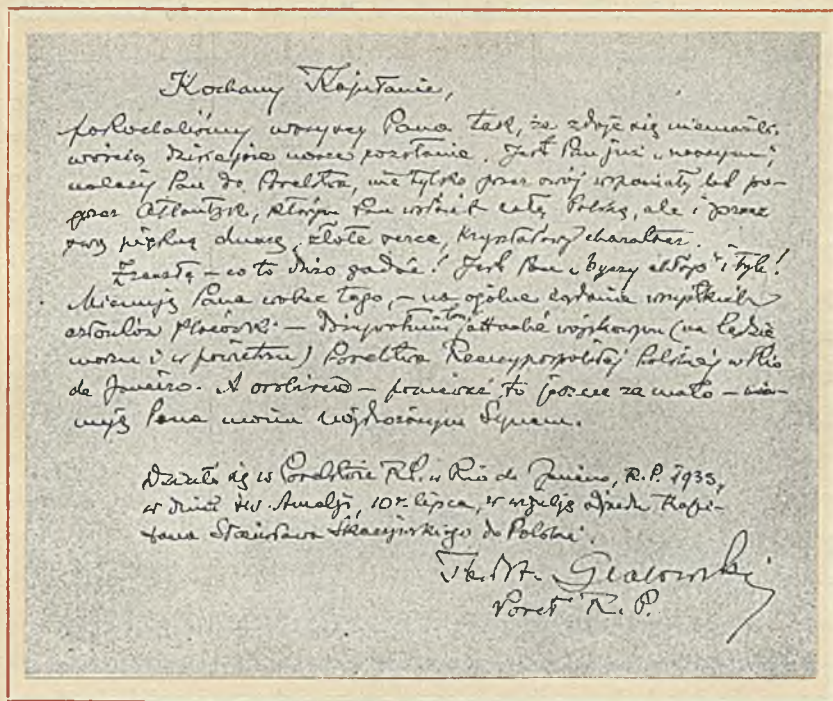 Kochany Kapitanie,
pokochaliśmy wszyscy Pana tak, że zdaje się niemożli-
wością dzisiejsze nasze rozstanie. Jest Pan już „naszym”,
należy Pan do Poselstwa, nie tylko przez swój wspaniały lot po-
przez Atlantyk, którym Pan wsławił całą Polskę, ale i przez
swą piękną duszę, złote serce, kryształowy charakter.
Zresztą – co to dużo gadać! Jest Pan „byczy chłop” i tyle!
Mianuję Pana wobec tego, – na ogólne żądanie wszystkich
członków placówki – dożywotnim attaché wojskowym (na lądzie
morzu i w powietrzu) Poselstwa Rzeczypospolitej Polskiej w Rio
de Janeiro. A osobiście – ponieważ to jeszcze za mało – mia-
nuję Pana moim Synem.
Działo się w Poselstwie R.P. w Rio de Janeiro, R.P. 1933,
w dniu św. Amelji, 10-go lipca, w wigilję odjazdu Kapi-
tana Stanisława Skarżyńskiego do Polski.
Grabowski
Poseł R.P.